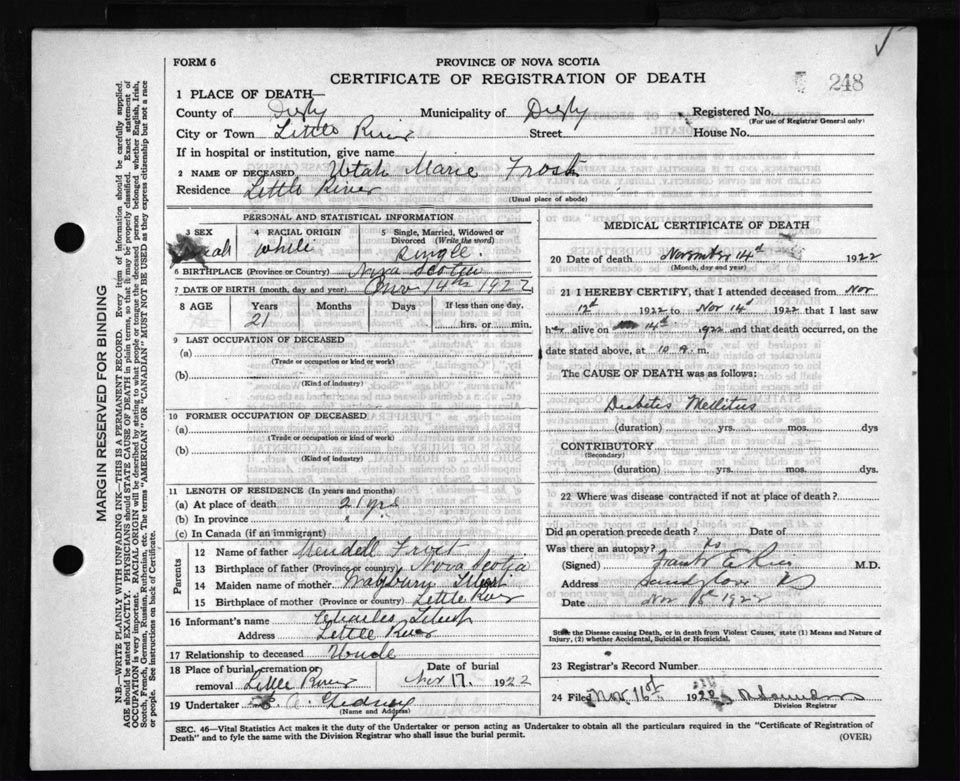 FORM 6
PROVINCE OF NOVA SCOTIA
CERTIFICATE OF REGISTRATION OF DEATH
248
1 PLACE OF DEATH—
County of Digby Municipality of Digby Registered No.
(For use of Registrar General only)
City or Town Little River Street House No.
If in hospital or institution, give name
2 NAME OF DECEASED Utah Marie Frost
Residence Little River
(Usual place of abode)
PERSONAL AND STATISTICAL INFORMATION
3 SEX 4 RACIAL ORIGIN 5 Single, Married, Widowed or Divorced (Write the word)
White Single.
6 BIRTHPLACE (Province or Country) Nova Scotia
7 DATE OF BIRTH (month, day and year) 14th 1922
8 AGE Years Months Days If less than one day,
21 hrs. or min.
9 LAST OCCUPATION OF DECEASED
(a)
(Trade or occupation or kind or work)
(b)
(Kind of industry)
10 FORMER OCCUPATION OF DECEASED
(a)
(Trade or occupation or kind of work)
(b)
(Kind of industry)
11 LENGTH OF RESIDENCE (In years and months)
(a) At place of death 21 yrs
(b) In province " "
(c) In Canada (if an immigrant)
Parents
12 Name of father Wendell Frost
13 Birthplace of father (Province or country) Nova Scotia
14 Maiden name of mother
15 Birthplace of mother (Province or country) Little River
16 Informant's name Charles
Address Little River
17 Relationship to deceased Uncle
18 Place of burial, cremation or removal Little River Date of burial Nov 17 1922
19 Undertaker Gidney
(Name and Address)
MEDICAL CERTIFICATE OF DEATH
20 Date of death November 14th 1922
(Month, day and year)
21 I HEREBY CERTIFY, that I attended deceased from Nov
12th 1922 to Nov 14th 1922 that I last saw
her alive on 14th 1922 and that death occurred, on the
date stated above, at 10 a. m.
The CAUSE OF DEATH was as follows:
Diabetes Mellitus
(duration) yrs. mos. dys
CONTRIBUTORY
(Secondary)
(duration) yrs. mos. dys.
22 Where was disease contracted if not at place of death?
Did an operation precede death? Date of
Was there an autopsy?
(Signed) Frank E Rice M.D.
Address Sandy Cove NS
Date Nov 1922
State the Disease causing Death, or in death from Violent Causes, state (1) Means and Nature of
Injury, (2) whether Accidental, Suicidal or Homicidal.
23 Registrar's Record Number
24 Filed Nov 16th 1922
Division Registrar
SEC. 46—Vital Statistics Act makes it the duty of the Undertaker or person acting as Undertaker to obtain all the particulars required in the "Certificate of Registration of
Death" and to fyle the same with the Division Registrar who shall issue the burial permit.
(OVER)
MARGIN RESERVED FOR BINDING
N.B.—WRITE PLAINLY WITH UNFADING INK—THIS IS A PERMANENT RECORD. Every item of information should be carefully supplied.
AGE should be stated EXACTLY. PHYSICIANS should STATE CAUSE OF DEATH in plain terms, so that it may be properly classified. Exact statement of
OCCUPATION is very important. RACIAL ORIGIN will be described by stating to what people or tongue the deceased person belonged whether English, Irish,
Scotch, French, German, Russian, Ruthenian, etc. The terms "AMERICAN" or "CANADIAN" MUST NOT BE USED as they express citizenship but not a race
or people. See instructions on back of Certificate.